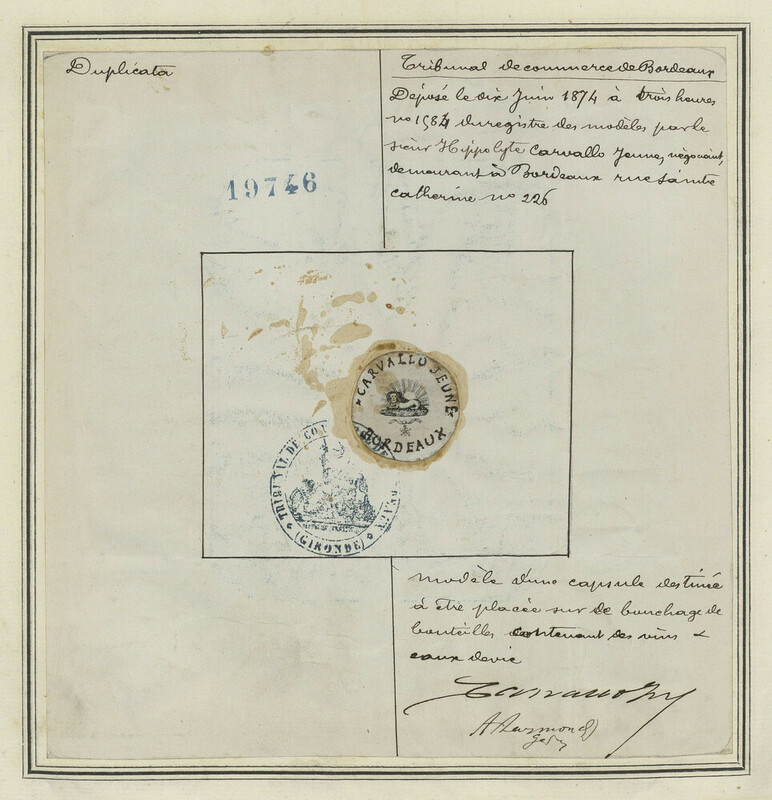 Duplicata
Tribunal de commerce de Bordeaux
Déposé le dix Juin 1874 à trois heures
no 1584 du registre des modèles par le
sieur Hippolyte Carvallo Jeune, négociant,
demeurant à Bordeaux rue Sainte
catherine no 226
19746
CARVALLO JEUNE
BORDEAUX
TRIBUNAL DE COM
(GIRONDE)
modèle d'une capsule destinée
à être placée sur de bouchage de
bouteilles contenant des vins &
eaux de vie
Carvallo Jne
A Raymond